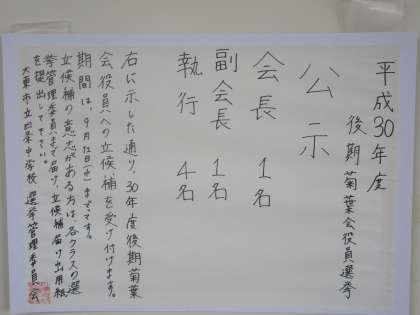 平成30年度
後期菊葉会役員選挙
公示
会長 1名
副会長 1名
執行 4名
右に示した通り、30年度後期菊葉
会役員への立候補を受け付けます。
期間は、9月12日(水)までです。
立候補の意志がある方は、各クラスの選
挙管理委員まで届け、立候補届け出用紙
を提出して下さい。
大東市立四条中学校 選挙管理委員会